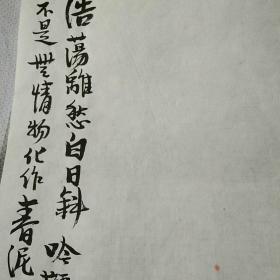 浩荡離愁白日斜 吟
不是無情物化作春泥